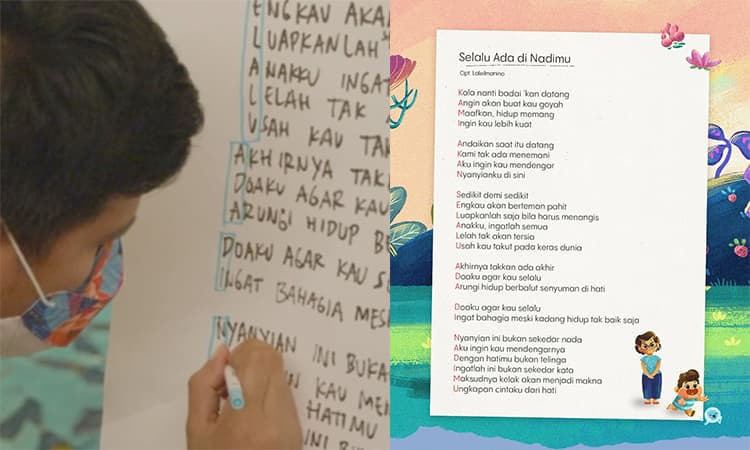 ENGKAU AKA
LUAPKANLAH
ANAKKU INGAT
LELAH TAK
USAH KAU TAK
AKHIRNYA TAK
DOAKU AGAR KAU
ARUNGI HIDUP BE
DOAKU AGAR KAU S
INGAT BAHAGIA MESK
NYANYIAN INI BUKA
KAU MEN
HATIMU
INI
Selalu Ada di Nadimu
Cpt. Laleilmanino
Kala nanti badai 'kan datang
Angin akan buat kau goyah
Maafkan, hidup memang
Ingin kau lebih kuat
Andaikan saat itu datang
Kami tak ada menemani
Aku ingin kau mendengar
Nyanyianku di sini
Sedikit demi sedikit
Engkau akan berteman pahit
Luapkanlah saja bila harus menangis
Anakku, ingatlah semua
Lelah tak akan tersia
Usah kau takut pada keras dunia
Akhirnya takkan ada akhir
Doaku agar kau selalu
Arungi hidup berbalut senyuman di hati
Doaku agar kau selalu
Ingat bahagia meski kadang hidup tak baik saja
Nyanyian ini bukan sekedar nada
Aku ingin kau mendengarnya
Dengan hatimu bukan telinga
Ingatlah ini bukan sekedar kata
Maksudnya kelak akan menjadi makna
Ungkapan cintaku dari hati